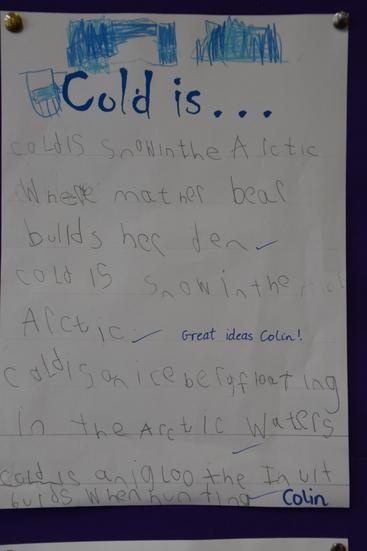 Cold is...
cold is snow in the Arctic
Where mather bear
builds her den
cold is snow in the
Arctic
Great ideas Colin!
cold is an ice berg floating
in the Arctic Waters
cold is an igloo the Inuit
builds when hunting
Colin